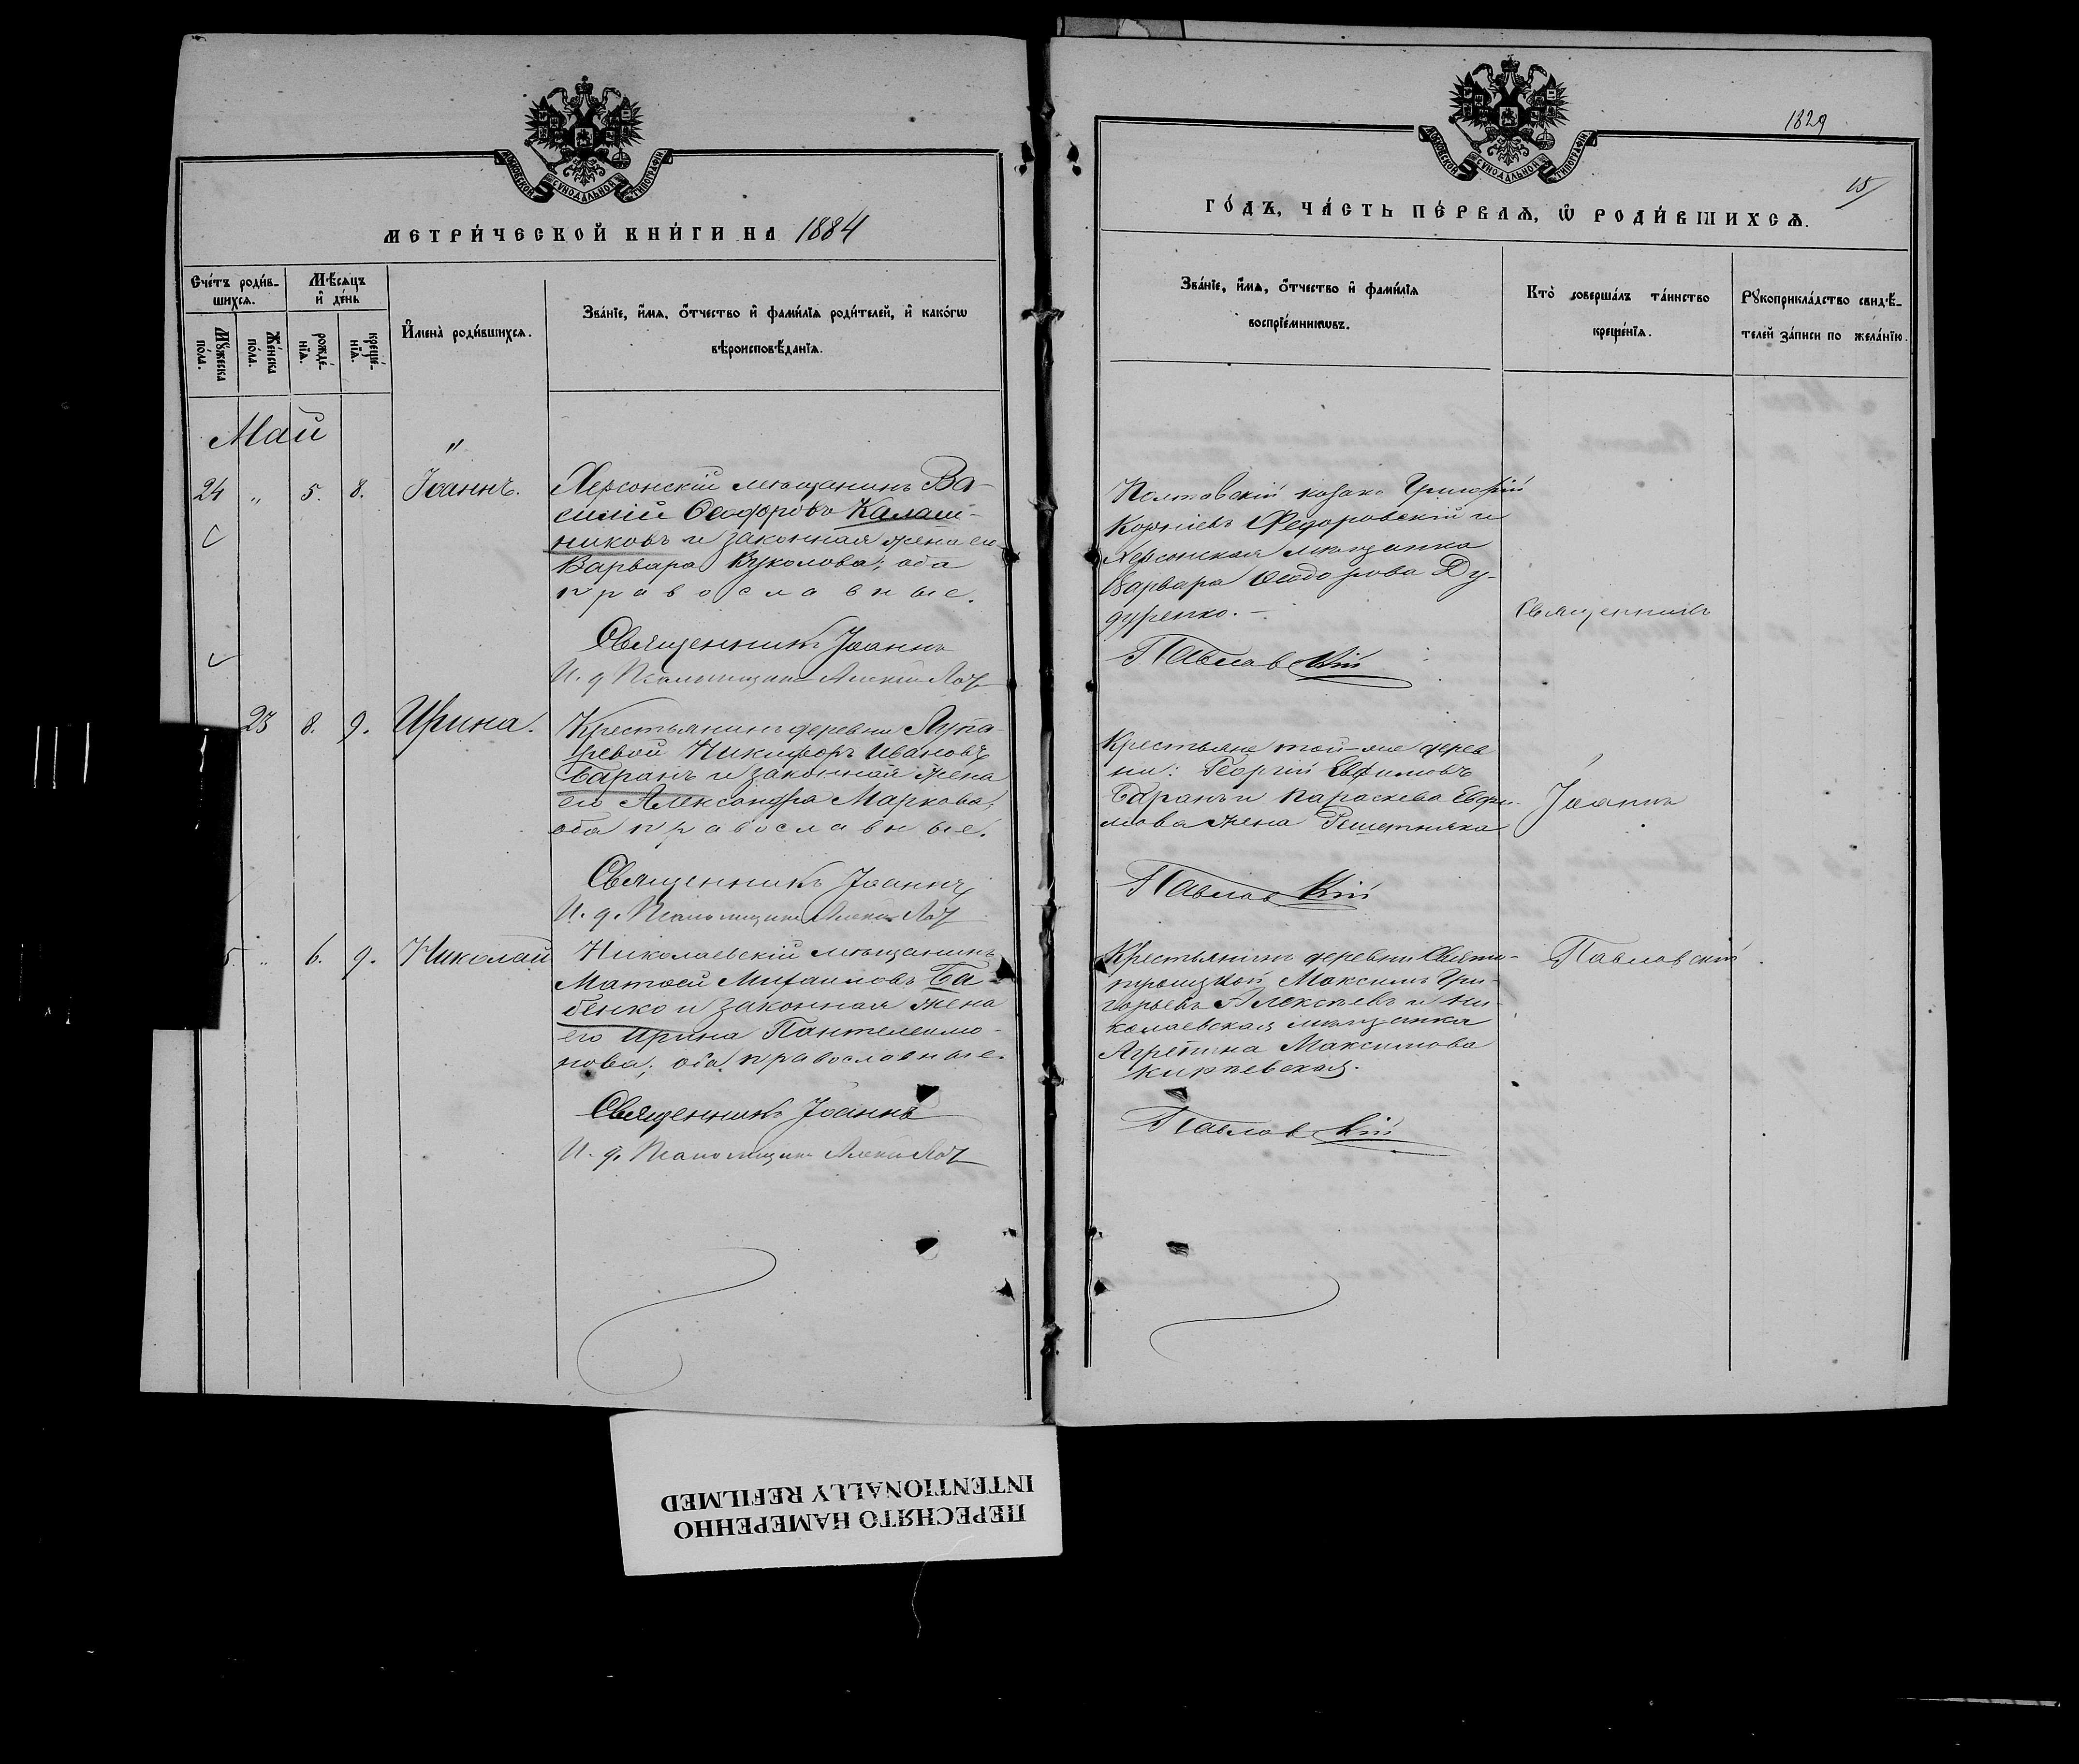 МОСКОВСКОЙ СѴНОДАЛЬНОЙ ТИПОГРАФІИ
МЕТРИ́ЧЕСКОЙ КНИ́ГИ НА 1884
Сче́тъ роди́в-
шихся.
Мѣ́сяцъ
и҆ де́нь
Мꙋ́жеска
по́ла.
Же́нска
по́ла.
рожде́-
нїѧ.
креще́-
нїѧ.
И҆мена̀ роди́вшихсѧ.
Зва́нїе, и҆́мѧ, ѻ҆́тчество и҆ фами́лїѧ роди́телей, и҆ како́гѡ
вѣроисповѣ́данїѧ.
Май
"
24 " 5. 8. Іоаннъ.
Херсонскій мѣщанинъ Ва-
силій Ѳеодоровъ Калаш-
никовъ и законная жена его
Варвара Вуколова; оба
православные.
Священникъ Іоаннъ
И. д. Псаломщика
23 8. 9. Ирина.
Крестьянинъ деревни Лупа-
ревой Никифоръ Ивановъ
Баранъ и законная жена
его Александра Маркова;
оба православные.
Священникъ Іоаннъ
И. д. Псаломщика
5. " 6. 9. Николай
Николаевскій мѣщанинъ
Матѳей Михаиловъ Ба-
бенко и законная жена
его Ирина Пантелеимо-
нова; оба православные.
Священникъ Іоаннъ
И. д. Псаломщика
МОСКОВСКОЙ СѴНОДАЛЬНОЙ ТИПОГРАФІИ
1829
15
ГО́ДЪ, ЧА́СТЬ ПЕ́РВАѦ, Ѡ҆ РОДИ́ВШИХСѦ.
Зва́нїе, и҆́мѧ, ѻ҆́тчество и҆ фами́лїѧ
воспрїе́мникѡвъ.
Кто̀ соверша́лъ та́инство
креще́нїѧ.
Рꙋкоприкла́дство свидѣ́-
телей за́писи по жела́нїю.
Полтавскій козакъ Григорій
Корніевъ Федоровскій и
Херсонская мѣщанка
Варвара Ѳеодорова Ду-
дуренко. —
Павловскій
Священникъ
Крестьяне той-же дерев
ни: Георгій Евфимовъ
Баранъ и Параскева Евфи-
мова жена Решетняка
Іоаннъ
Павловскій
Крестьянинъ деревни Свято-
троицкой Максимъ Гри-
горьевъ Алексѣевъ и ни-
колаевская мѣщанка
Агрепина Максимова
Кирпевская.
Павловскій
Павловскій
ПЕРЕСНЯТО НАМЕРЕННО
INTENTIONALLY REFILMED